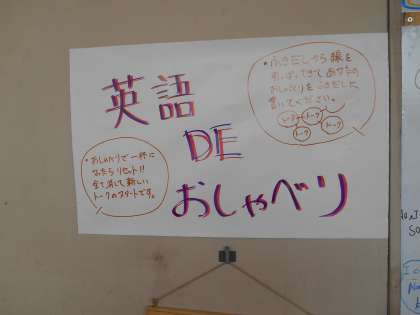 英語
DE
おしゃべり
・ふきだしから線を
ひっぱってきてあなたの
おしゃべりをふきだしに
書いてください。
トーク
トーク
トーク
トーク
・おしゃべりで一杯に
なったらリセット!!
全て消して新しい
トークのスタートです。